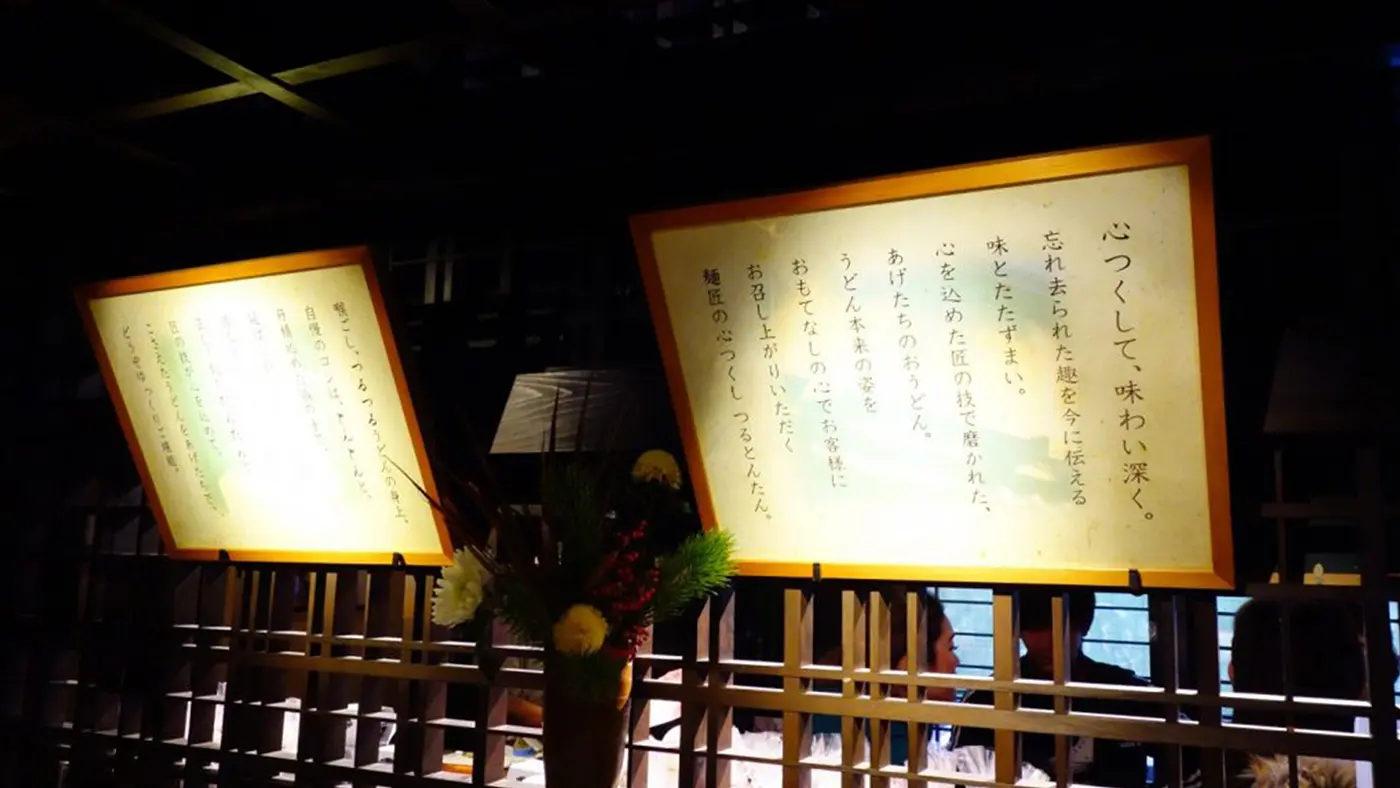 心つくして、味わい深く。
忘れ去られた趣を今に伝える
味とたたずまい。
心を込めた匠の技で磨かれた、
あげたちのおうどん。
うどん本来の姿を
おもてなしの心でお客様に
お召し上がりいただく
麺匠の心つくし つるとんたん。
喉ごし、つるつるうどんの身上、
自慢のコシは、とんとんと、
匠の技が心を込めて、
こさえたうどんをあげたちで、
どうぞゆっくりご堪能。